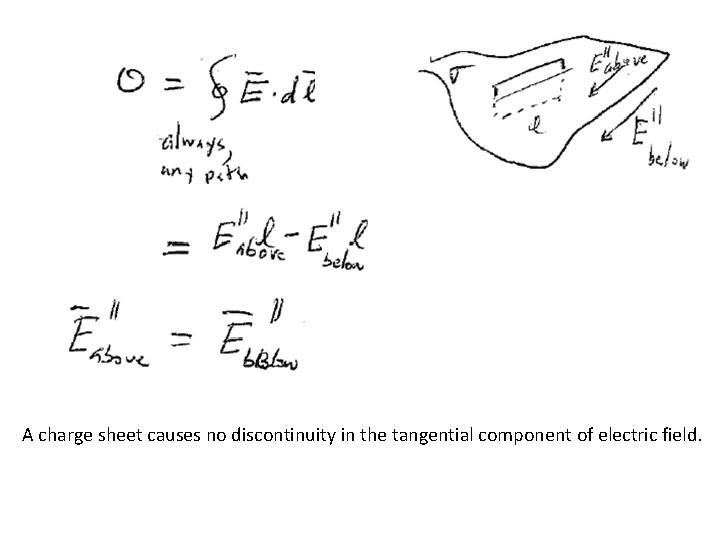 0 = ∮ E̅ · d l̅
always,
any path
σ
l
E"above
E"
below
= E"above l − E"below l
E̅"above = E̅"below
A charge sheet causes no discontinuity in the tangential component of electric field.